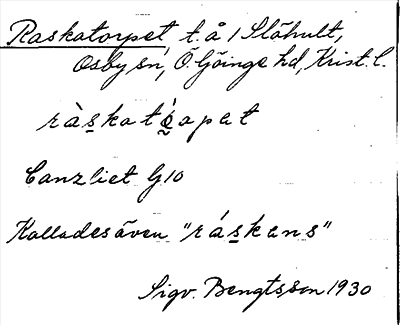 Raskatorpet t. å 1 Slähult,
Osby sn, Ö. Göinge hd, Krist. l.
ràskatǫ́rpat
Canzliet G10
Kallades även "ráskens"
Sigv. Bengtsson 1930